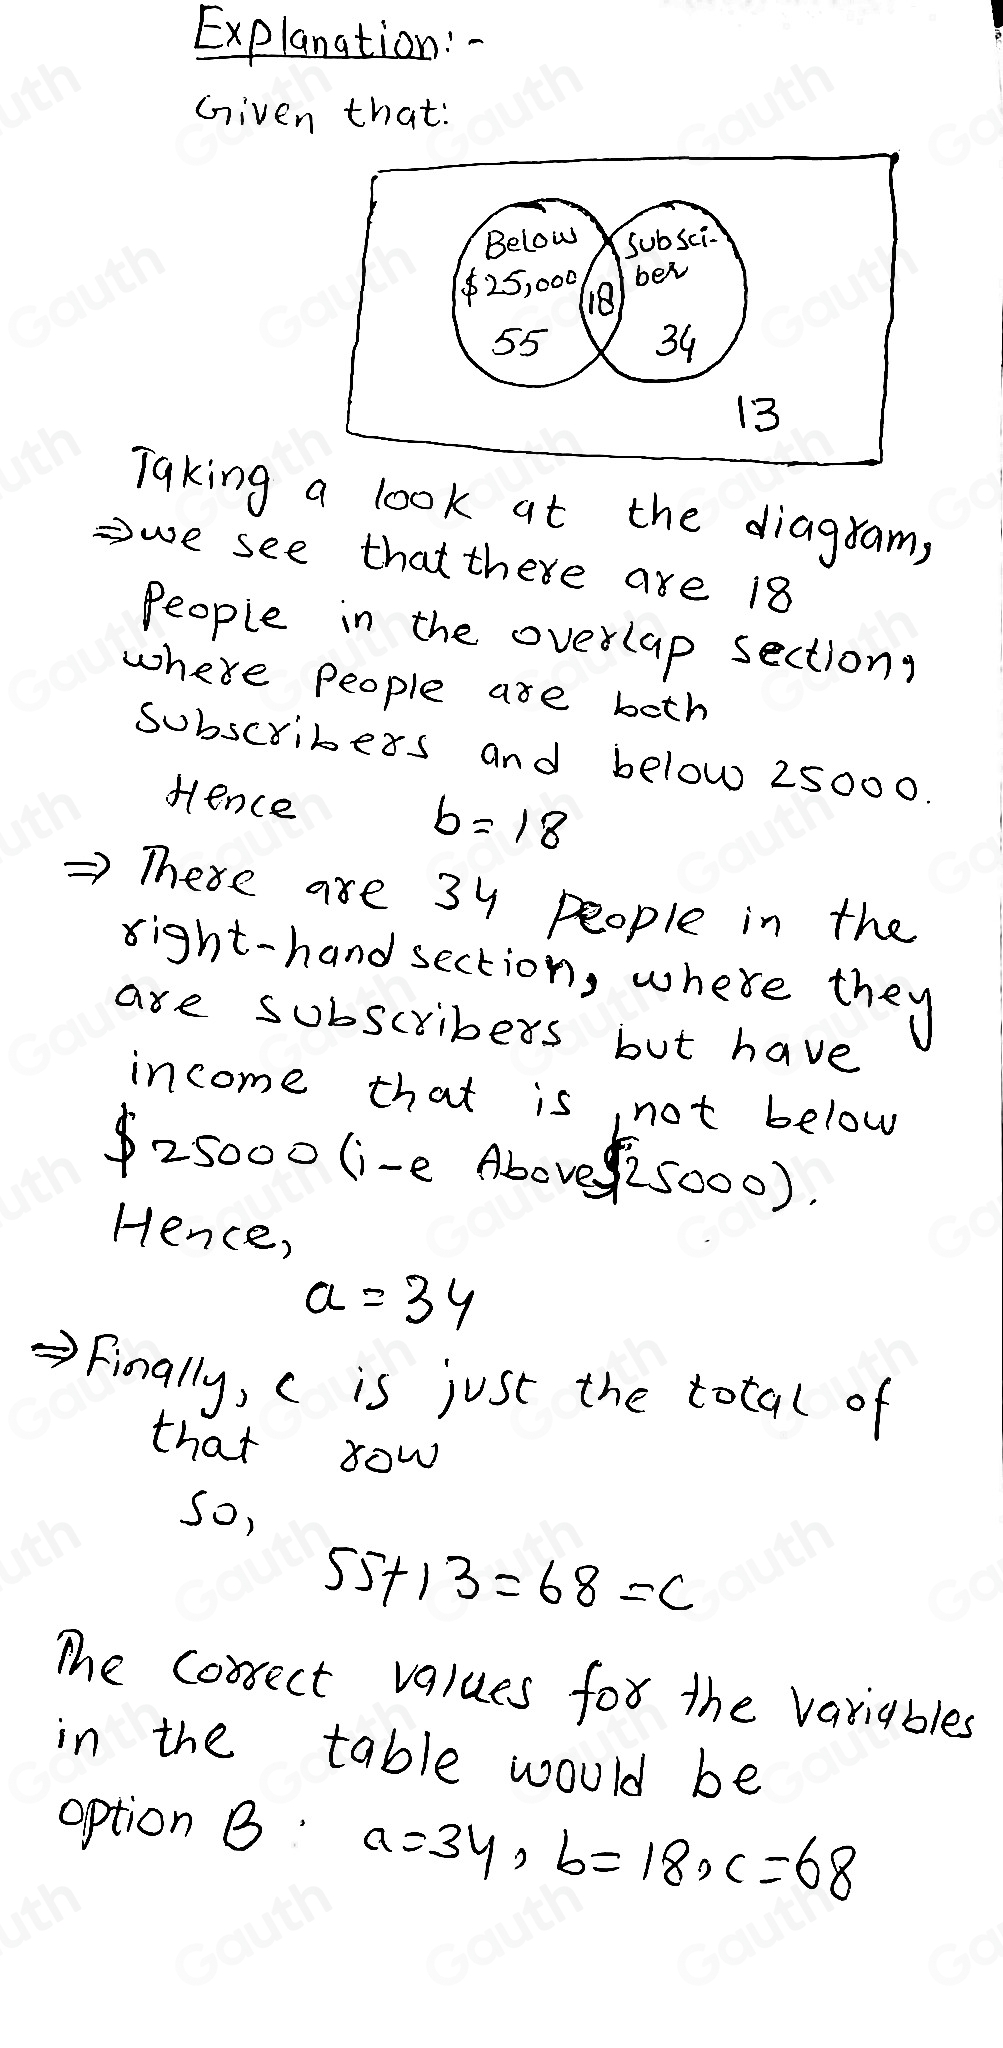 Explanation:-
Given that:
Below
$25,000
55
18
Subsci-
ber
34
13
Taking a look at the diagram,
⇒ we see that there are 18
People in the overlap section,
where People are both
Subscribers and below 25000.
Hence b=18
⇒ There are 34 People in the
right-hand section, where they
are subscribers but have
income that is not below
$25000 (i-e Above $25000).
Hence,
a = 34
⇒ Finally, c is just the total of
that row
So,
55+13=68=c
The correct values for the variables
in the table would be
option B. a=34, b=18, c=68